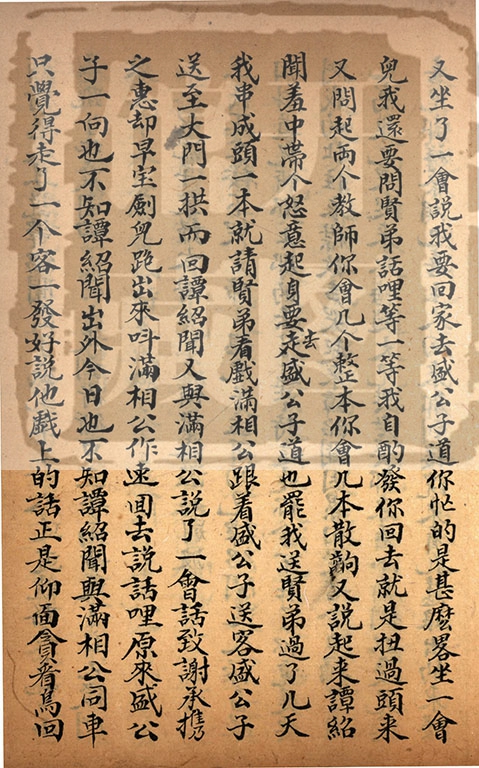 又坐了一會說我要回家去盛公子道你忙的是甚麽畧坐一會
兒我還要問賢弟話哩等一等我自酌發你回去就是扭過頭來
又問起兩个教師你會几个整本你會几本散齣又說起来譚紹
聞羞中帶个怒意起身要走去盛公子道也罷我送賢弟過了几天
我串成頭一本就請賢弟看戲滿相公跟着盛公子送客盛公子
送至大門一拱而回譚紹聞又與滿相公說了一會話致謝承携
之惠却早宝劍兒跑出來呌滿相公作速回去說話哩原來盛公
子一向也不知譚紹聞出外今日也不知譚紹聞與滿相公同車
只覺得走了一个客一發好說他戲上的話正是仰面貪看鳥回